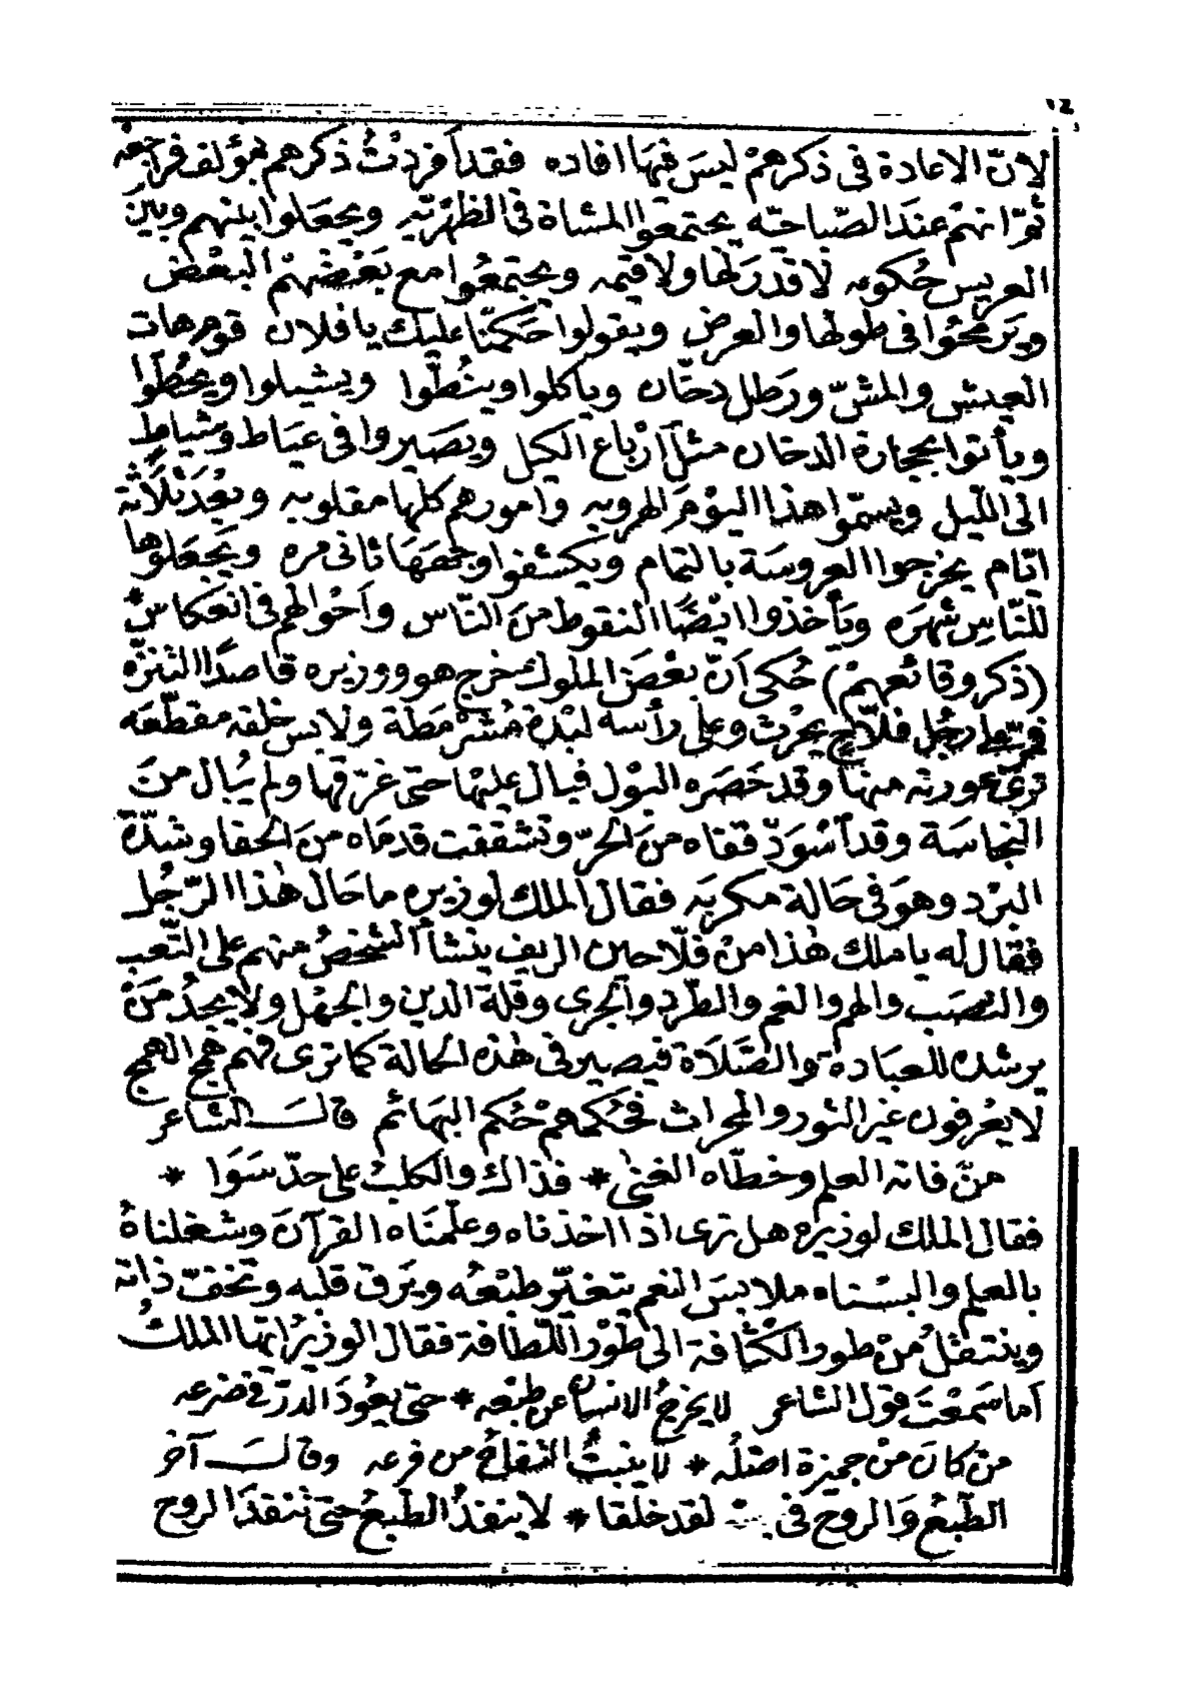 ١٤
لأنّ الاعادة فى ذكرهمْ ليسَ فيهَا افاده فقد أفردْتُ ذكرهم بمؤلف فراجعه
ثمّ انهمْ عندَ الصّباحيّه يجتمعوا المشاة فى الظهرّيه ويجعلوا بينهم وبينَ
العريس حُكومه لَا قدْرَ لهَا ولا قيمه ويجتمعُوا مع بَعْضهمْ البعْض
ويَرمحُوا فى طولها والعرض ويقولوا حَكمنَا عليك يا فلان قوم هات
العيش والمشّ ورَطل دخّان وياكلوا وينُطّوا ويشيلوا ويحُطّوا
ويأتوا بحجارة الدخان مثل أرْباع الكيل ويصَيروا فى عيَاط وشيَاط
الى اللّيل ويسمّوا هذا اليوْمَ الهروبه وامورهم كلّها مقلوبه وبعْدَ ثلَاثة
ايّام يخرجوا العروسَة بالتمام ويَكشفوا وجْههَا ثانى مره ويَجعَلوهَا
للنّاس شهرَه ويَأخذوا ايْضًا النقوط منَ النّاس وأحْوالهم فى انعكاسْ *
(ذكر وقائعهمْ) حُكى أنّ بعْضَ الملوك خرج هو ووزيره قاصدًا التنزّه
فمرّ على رجُل فلّاح يحْرث وعلى رأسه لبْدة مُشرْمَطة ولابس خلقه مقطّعَه
تُرىَ عورته منهَا وقد حَصَره البوْل فبال عليْها حتى غرّقها ولم يُبال منَ
النجَاسَة وقد أسْوَدّ قفاه منَ الحرّ وتشققت قدمَاه منَ الحفا وشدّة
البرْد وهوَ فى حَالة مكربَه فقال الملك لوزيره ما حَال هٰذا الرّجُل
فقَال له يا ملك هٰذا منْ فلّاحين الريف ينشأ الشخصُ منهم على التّعب
والنصَب والهم والغم والطّرد والجَرى وقلة الدين والجهْل ولَا يجدُ مَنْ
يرشده للعبَادة والصَّلَاة فيصير فى هٰذه الحالة كما ترى فهم همج الهمج
لا يعْرفون غيْر الثور والمحراث فحُكمهمْ حُكم البهَائم قالـــَ الشاعر
منْ فاته العلم وخطّاه الغنىٰ * فذاك والكلبُ على حدّ سَوَا *
فقال الملك لوزيره هل ترى اذا اخذناه وعلّمنَاه القرآنَ وشغلناهُ
بالعلم والبسْناه ملابسَ النعم يتغيّر طبْعُه ويَرق قلبه وتخفّ ذاته
وينتقلُ منْ طور الكثَافة الى طوْر اللّطافة فقال الوزيرُ ايّها الملكُ
أما سَمعْتَ قول الشاعر لا يخرجُ الانسانُ عن طبْعه * حتى يعُودَ الدرّ فى ضرعه
منْ كانَ منْ جميزة اصْلُه * لا ينبتُ التفاحُ من فرعه وقالـــَ آخر
الطّبْعُ وَالروحُ فى لقد خلقا * لا ينفذُ الطّبعُ حتىّ تنفذَ الروحُ